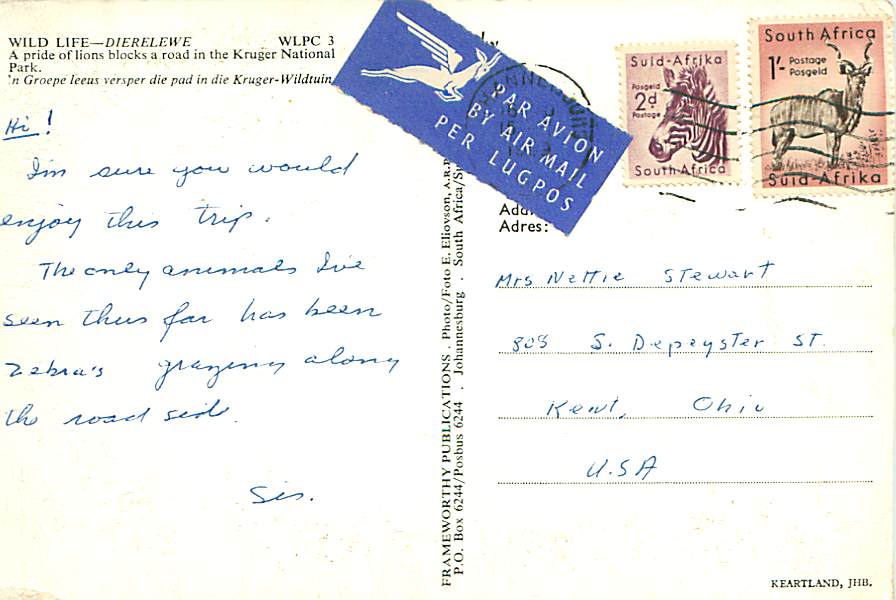 WILD LIFE—DIERELEWE WLPC 3
A pride of lions blocks a road in the Kruger National
Park.
'n Groepe leeus versper die pad in die Kruger-Wildtuin
Hi!
I'm sure you would
enjoy this trip.
The only animals I've
seen thus far has been
zebra's grazing along
the road side.
Sis.
FRAMEWORTHY PUBLICATIONS . Photo/Foto E. Eliovson, A.R.
P.O. Box 6244/Posbus 6244 . Johannesburg . South Africa/
PAR AVION
BY AIR MAIL
PER LUGPOS
Suid-Afrika
Posgeld
2d
Postage
South Africa
South Africa
1'- Postage
Posgeld
Suid-Afrika
Adres:
Mrs Nettie Stewart
808 S. Depeyster St.
Kent, Ohio
U.S.A
KEARTLAND, JHB.